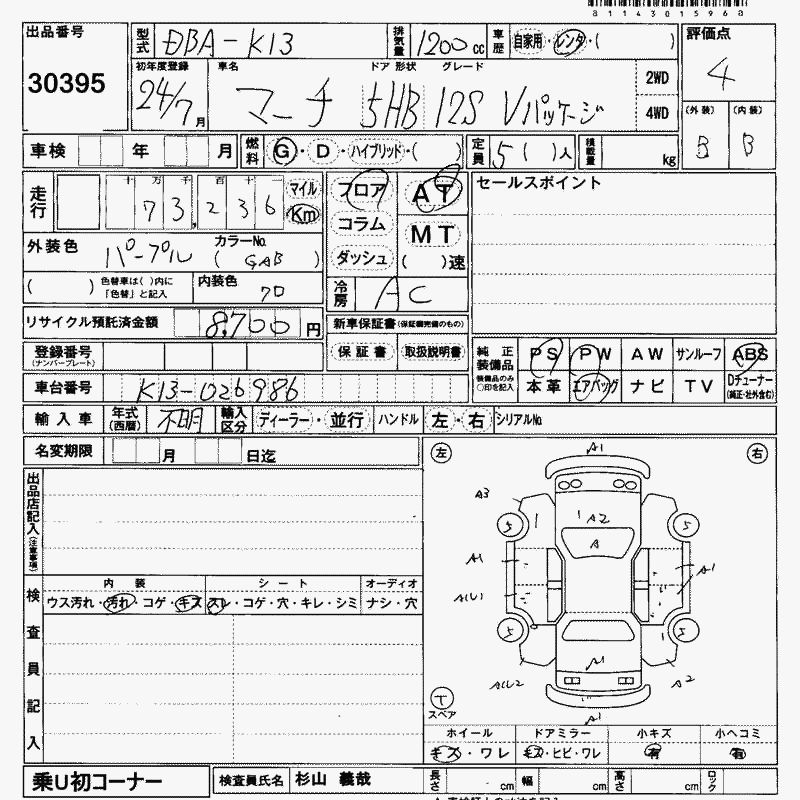 a114301596a
出品番号 30395
型式 DBA-K13 排気量 1200cc 車歴 自家用・レンタ・( )
初年度登録 24/7月 車名 マーチ ドア 形状 5HB グレード 12S Vパッケージ 2WD 4WD
評価点 4
(外装) B (内装) B
車検 年 月 燃料 G・D・ハイブリッド・( ) 定員 5( )人 積載量 kg
走行 十 万 千 百 十 一 73,236 マイル Km
フロア コラム ダッシュ AT MT ( )速
セールスポイント
外装色 パープル カラーNo. (GAB)
( ) 色替車は( )内に「色替」と記入 内装色 クロ
冷房 AC
リサイクル預託済金額 8700円
新車保証書(保証継続完備のもの)
保証書 取扱説明書
登録番号(ナンバープレート)
純正装備品 装備品のみ○印を記入 PS PW AW サンルーフ ABS
本革 エアバッグ ナビ TV Dチューナー(純正・社外含む)
車台番号 K13-026986
輸入車 年式(西暦) 不明 輸入区分 ディーラー・並行 ハンドル 左・右 シリアルNo.
名変期限 月 日迄
出品店記入(注意事項)
検査員記入
内装 シート オーディオ
ウス汚れ・汚れ・コゲ・キズ スレ・コゲ・穴・キレ・シミ ナシ・穴
左 右
A1
A3
A2
A
5 5
A1 A1
A(U)
5 5
A1
A(U2 A2
A1
T
スペア
ホイール ドアミラー 小キズ 小ヘコミ
キズ・ワレ キズ・ヒビ・ワレ 有 有
乗U初コーナー
検査員氏名 杉山 義哉 長さ cm 幅 cm 高さ cm ロック